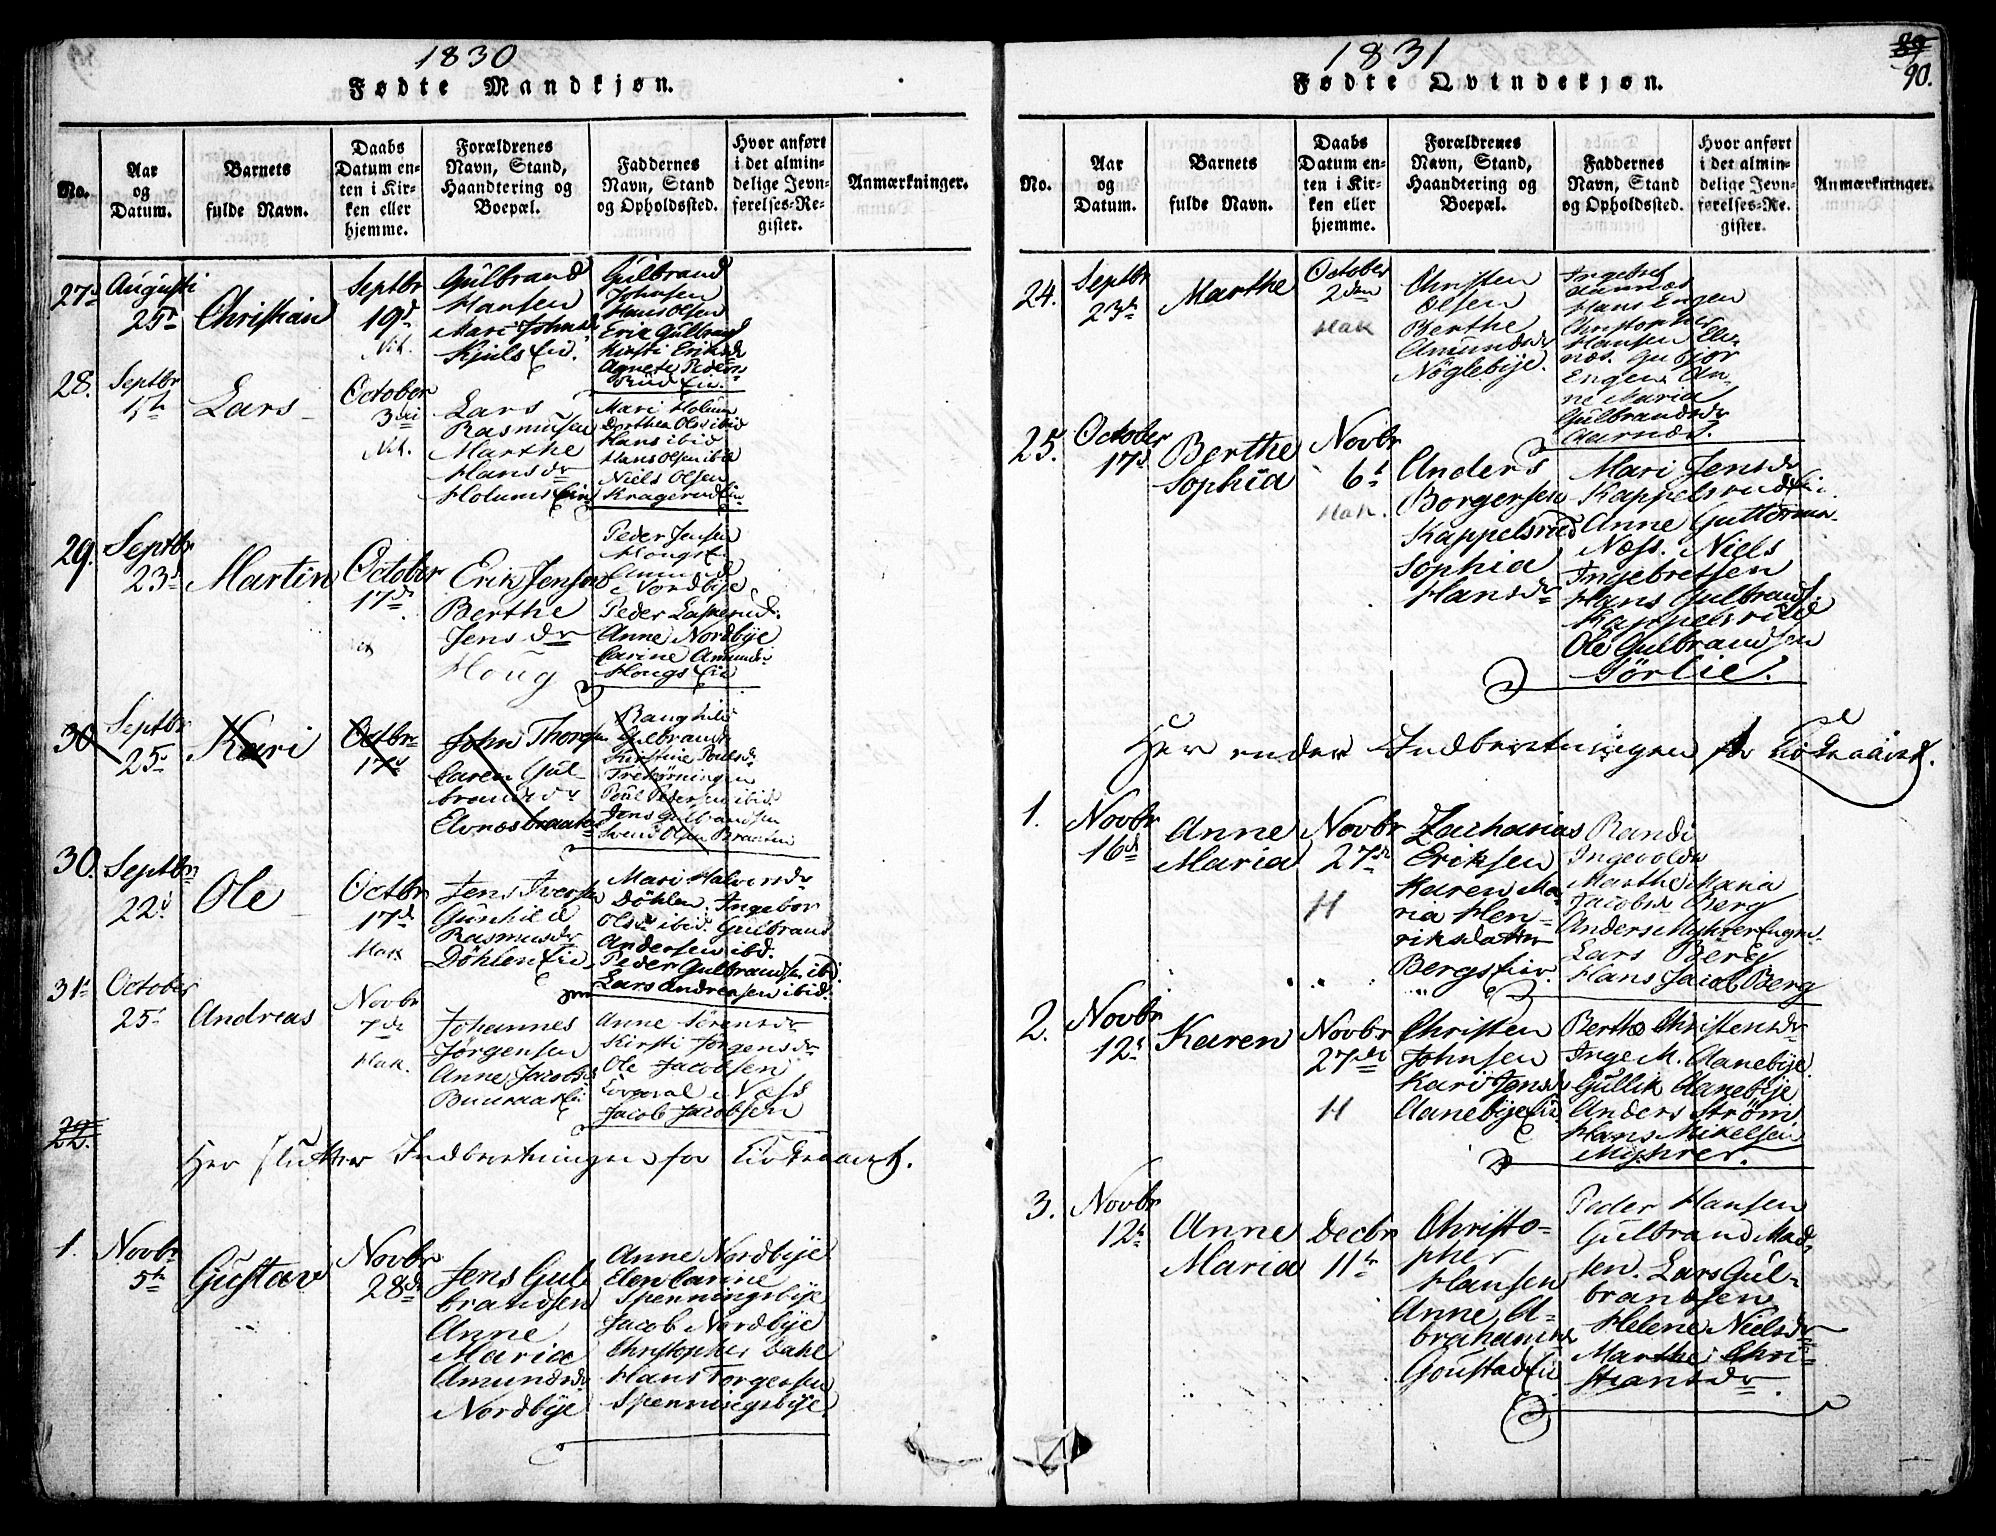 1830
Fødte Mandkjøn.
No.
Aar
og
Datum.
Barnets
fulde Navn.
Daabs
Datum en-
ten i Kir-
ken eller
hjemme.
Forældrenes
Navn, Stand,
Haandtering og
Boepæl.
Faddernes
Navn, Stand
og Opholdssted.
Hvor anført
i det almin-
delige Jevn-
førelses-Re-
gister.
Anmærkninger.
27d
Augusti
25d
Christian
Septbr
19d
Nit.
Gulbrand
Hansen
Mari Johnsd
Kjuls Eie.
Gulbrand
Johnsen
Hans Olsen
Eric Gulbrand
Kirsti Eriksd
Agnete Peders
Rüd Eie.
28.
Septbr
5th
Lars
October
3die
Nit.
Lars
Rasmusen
Marthe
Hansdr
Holums Eie
Mari Holum
Dorthea Ols ibid
Hans ibid
Hans Olsen ibid
Niels Olsen
Kragerud Eie
29.
Septbr
23d
Martin
October
17de
Nit
Erik Jensen
Berthe
Jensdr
Houg
Peder Jensen
Hougs E.
Amund
Nordbye
Peder Lasserud.
Anne Nordbye
Carine Amunds
Hougs Eie
30
Septbr
25
Kari
Octbr
17d
John Thorgs
Caren Gul-
brandsdr
Elvnesbraaten
Ranghild
Gulbrandsd
Poulsd.
Poul Pedersen ibid
Jens Gulbrandsen
Svend Olsen Braaten
30.
Septbr
22d
Ole
Octbr
17de
Hak
Jens Iversen
Gunhild
Rasmusdr
Döhlen Eie
Mari Halvorsdr
Döhlen. Ingebor
Olsd ibid. Gulbrand
Andersen ibd.
Peder Gulbrandsen ibi
Lars Andreasen ibid.
31t
October
25d
Andreas
Novbr
7de
Hak.
Johannes
Jörgensen
Anne Jacobsd
Buuraas Ei
Anne Sörensdr
Kirsti Jorgensdr
Ole Jacobsen
Corporal Næss
Jacob Jacobsen
22.
Her slutter Indberetningen for Kirkeaaret.
1.
Novbr
5th
Gustav
Novbr
28de
Jens Gul
brandsen
Anne
Maria
Amundsdr
Nordbye
Anne Nordbye
Elen Carine
Spenningsbye
Jacob Nordbye
Christopher Dahl
Hans Torgersen
Spenningsbye
1831
Fødte Qvindekjøn.
89
90.
No.
Aar
og
Datum.
Barnets
fulde Navn.
Daabs
Datum en-
ten i Kir-
ken eller
hjemme.
Forældrenes
Navn, Stand,
Haandtering og
Boepæl.
Faddernes
Navn, Stand
og Opholdssted.
Hvor anført
i det almin-
delige Jevn-
førelses-Re-
gister.
Anmærkninger.
24.
Septbr
23d
Marthe
October
2den
Hak
Christen
Olsen
Berthe
Amundsdr
Nöglebye.
Ingebret
Aarnæs
Hans Engen
Christopher
Hansen El-
næs. Gubjör
Engen An-
ne Maria
Gulbrandsdr
Aarnæs.
25.
October
17d
Berthe
Sophia
Novbr
6t
Hak.
Anders
Borgersen
Kappelsrud
Sophia
Hansdr
Mari Jensdr
Kappelsrud Eie.
Anne Guttorms
Næss. Niels
Ingebretsen
Hans Gulbrands.
Kappelsrud
Ole Gulbrandsen
Sörlie.
Her ender Indberetningen for Kirkeaaret.
1.
Novbr
16d
Anne
Maria
Novbr
27de
H
Zacharias
Eriksen
Karen Ma-
ria Hen-
riksdatter
Bergs Eie.
Randi
Ingevoldsd
Marthe Maria
Jacobsdr Berg
Anders Myhrer
Lars Berg
Hans Jacob Berg
2.
Novbr
12t
Karen
Novbr
27de
H
Christen
Johnsen
Kari Jensdr
Aanebye Eie
Berthe Christensdr
Inge M. Aanebye.
Gullik Aanebye
Anders Ström
Hans Mikelsen
Myhrer.
3.
Novbr
12t
Anne
Maria
Decbr
11te
Christo-
pher
Hansen
Anne A-
brahamsdr
Goustad Eie
Peder Hansen
Gulbrand Mad-
sen. Lars Gul-
brandsen
Helene Nielsdr
Marthe Chri-
stiansdr.